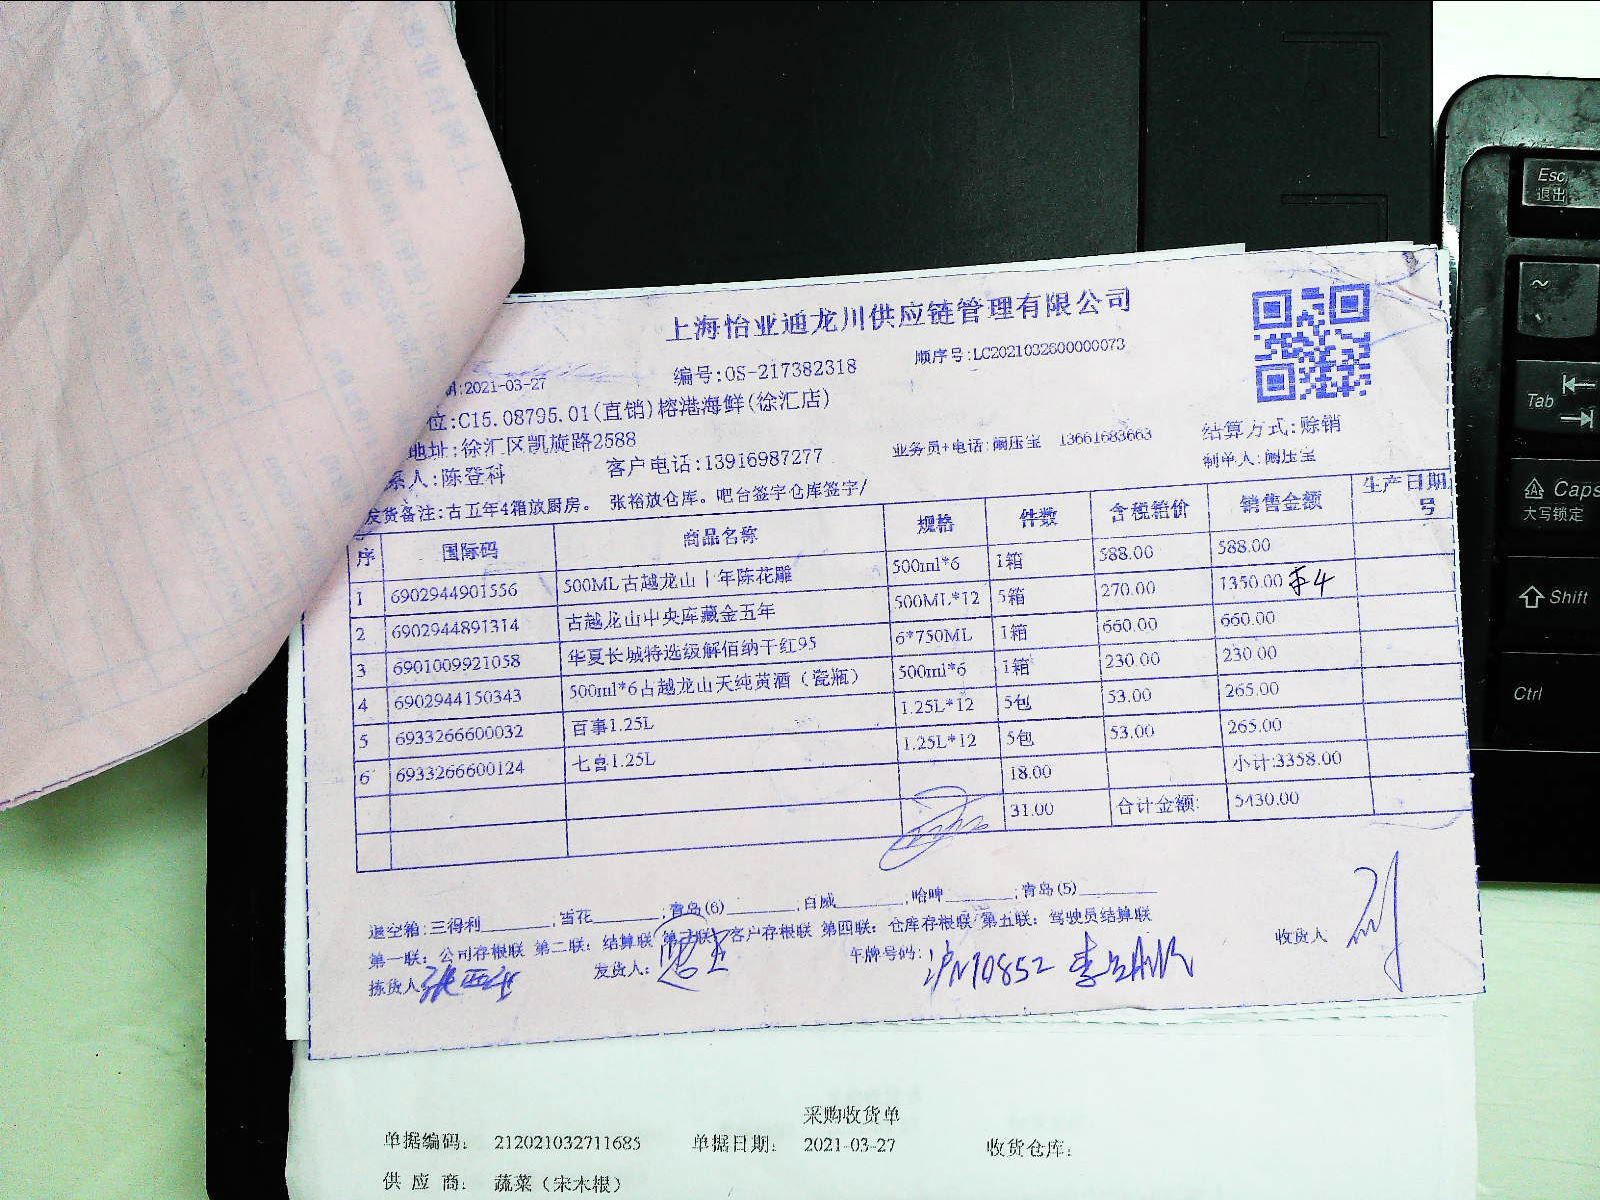 上海怡亚通龙川供应链管理有限公司
:2021-03-27 编号:OS-217382318 顺序号:LC2021032600000073
位:C15.08795.01(直销)榕港海鲜(徐汇店)
地址:徐汇区凯旋路2588
系人:陈登科 客户电话:13916987277 业务员+电话:阚压宝 13661683663 结算方式:赊销
制单人:阚压宝
发货备注:古五年4箱放厨房。 张裕放仓库。吧台签字仓库签字/
序 国际码 商品名称 规格 件数 含税箱价 销售金额 生产日期
号
1 6902944901556 500ML古越龙山十年陈花雕 500ml*6 1箱 588.00 588.00
2 6902944891314 古越龙山中央库藏金五年 500ML*12 5箱 270.00 1350.00
3 6901009921058 华夏长城特选级解佰纳干红95 6*750ML 1箱 660.00 660.00
4 6902944150343 500ml*6古越龙山天纯黄酒（瓷瓶） 500ml*6 1箱 230.00 230.00
5 6933266600032 百事1.25L 1.25L*12 5包 53.00 265.00
6 6933266600124 七喜1.25L 1.25L*12 5包 53.00 265.00
18.00 小计:3358.00
31.00 合计金额: 5430.00
退空箱:三得利______;雪花______;青岛(6)______,百威______,哈啤______;青岛(5)______
第一联: 公司存根联 第二联: 结算联 第三联: 客户存根联 第四联: 仓库存根联 第五联: 驾驶员结算联
拣货人: 发货人: 车牌号码: 收货人
采购收货单
单据编码: 212021032711685 单据日期: 2021-03-27 收货仓库:
供 应 商: 蔬菜（宋木根）
Esc
退出
~
Tab
Caps
大写锁定
Shift
Ctrl